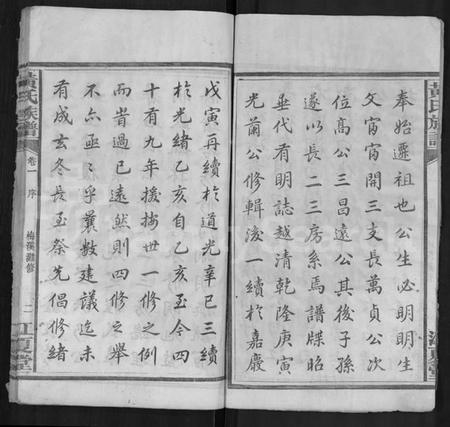 奉始遷祖也公生必明明生
文甯甯開三支長萬貞公次
位高公三昌遠公其後子孫
遂以長二三房系焉譜牒昭
垂代有明誌越清乾隆庚寅
光蘭公修輯後一續於嘉慶
戊寅再續於道光辛巳三續
於光緒乙亥自乙亥至今四
十有九年援按世一修之例
而眚過已遠然則四修之舉
不亦亟亟乎冀數建議迄未
有成玄冬長至祭先倡修緒
黃氏族譜
卷一
序
梅溪灘修
二
江夏堂